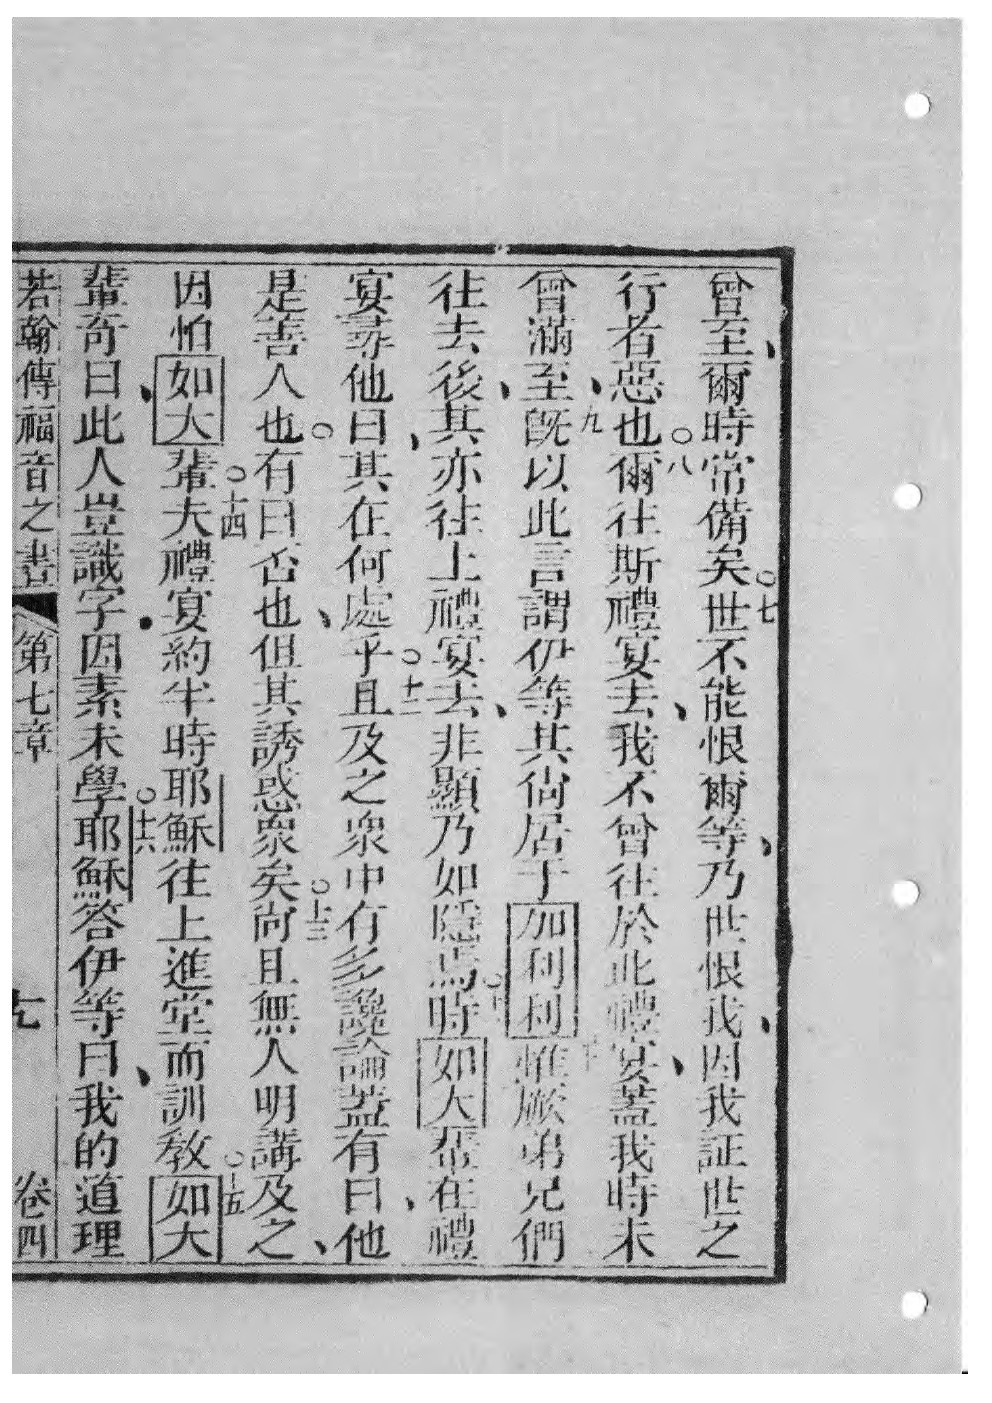 曾至爾時常備矣○七世不能恨爾等乃世恨我因我証世之
行者惡也○八爾往斯禮宴去我不曾往於此禮宴蓋我時未
曾滿至九既以此言謂伊等其尙居于加利利十惟厥弟兄們
往去後其亦往上禮宴去非顯乃如隱焉○十時如大輩在禮
宴尋他曰其在何處乎○十二且及之衆中有多讒論蓋有曰他
是善人也○有曰否也但其誘惑衆矣○十三尙且無人明講及之
因怕如大輩○十四夫禮宴約半時耶穌往上進堂而訓敎○十五如大
輩奇曰此人豈識字因素未學○十六耶穌答伊等曰我的道理
若翰傳福音之書 第七章 七 卷四